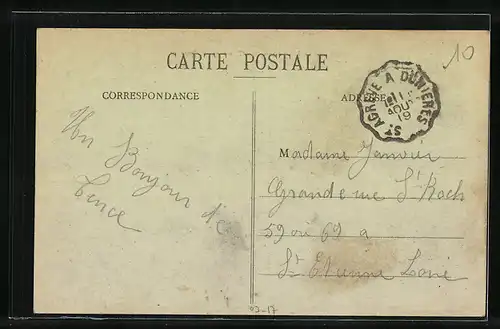 CARTE POSTALE
10
CORRESPONDANCE
ADRESSE
ST AGREVE A DUNIERES
AOUT
19
Un Bonjour de
Tence
Madame Janvier
Grande rue St Roch
59 ou 69 a
St Etienne Loire